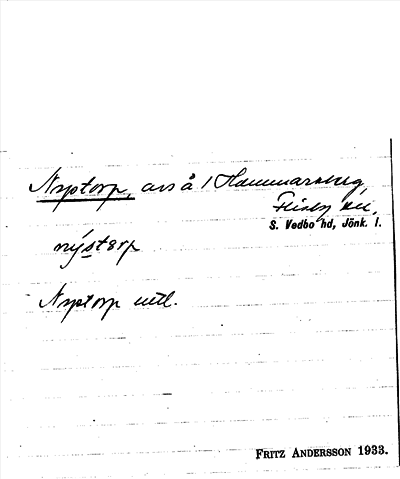 Nyptorp, avs å 1 Hammarsberg,
Flisby sn,
S. Vedbo hd, Jönk. l.
nýstorp
Nyptorp uttl.
FRITZ ANDERSSON 1933.